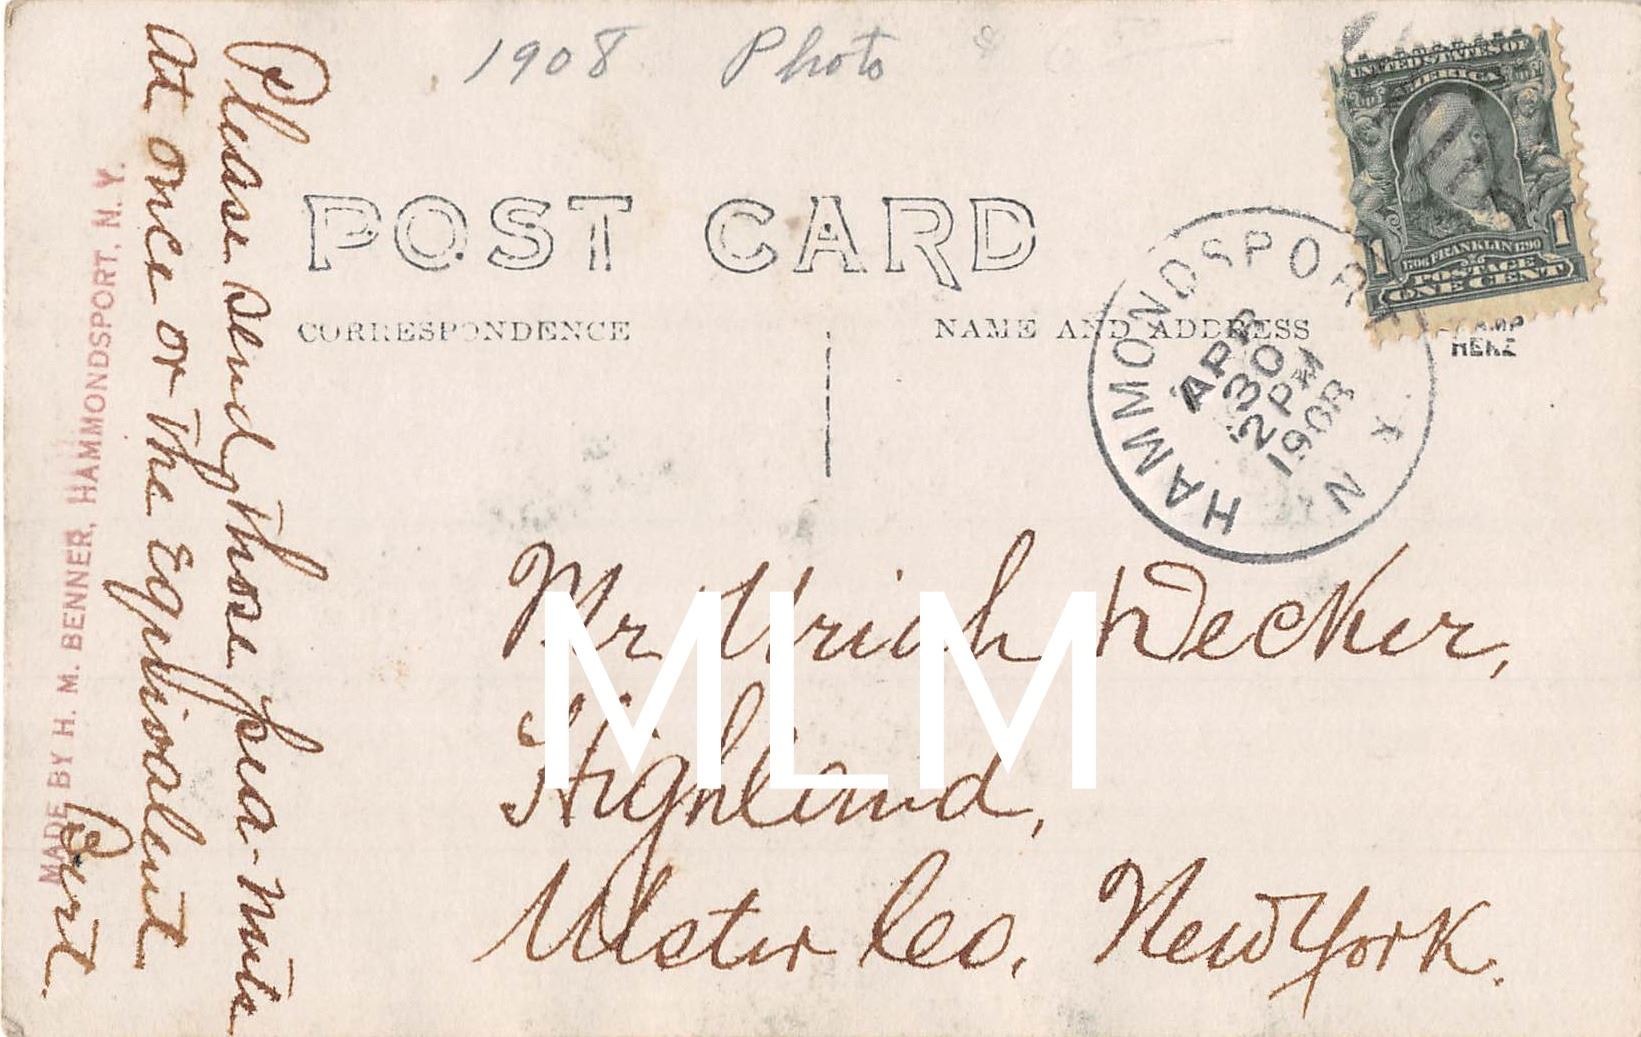 1908 Photo
POST CARD
CORRESPONDENCE
NAME AND ADDRESS
STAMP
HERE
UNITED STATES OF
AMERICA
1706 FRANKLIN 1790
1 1
POSTAGE
ONE CENT
HAMMONDSPORT
N Y
APR
30
2 PM
1908
Please send those pea-nuts
at once or the Equivalent
Burt.
MADE BY H. M. BENNER, HAMMONDSPORT, N. Y.
Mr Uriah Decker,
Highland,
Ulster Co. New York.
MLM